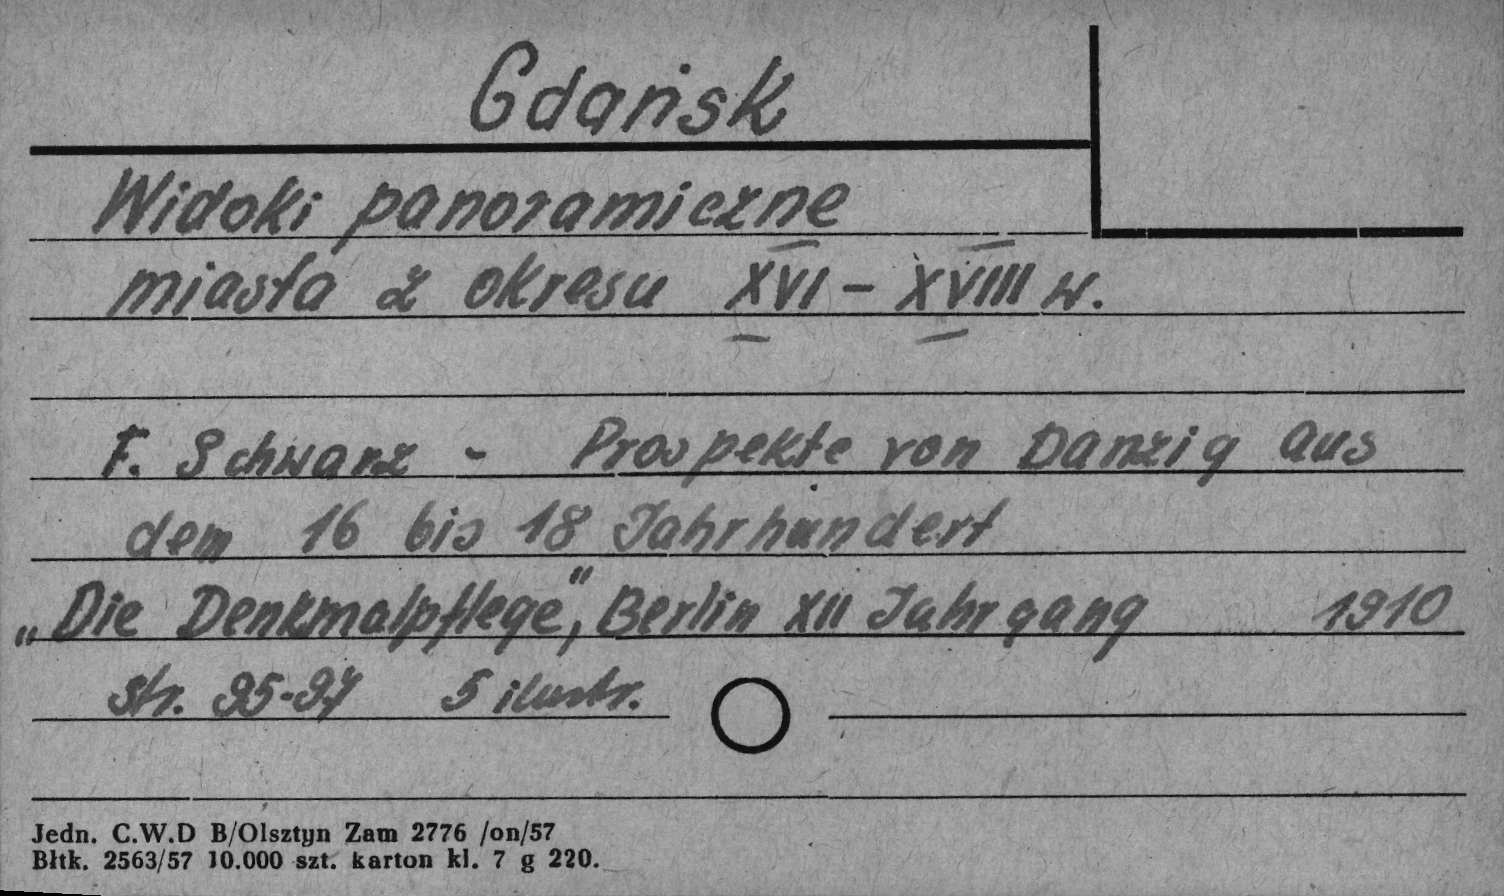 Gdańsk
Widoki panoramiczne
miasta z okresu XVI - XVIII w.
F. Schwarz - Prospekte von Danzig aus
dem 16 bis 18 Jahrhundert
„Die Denkmalpflege”, Berlin XII Jahrgang 1910
str. 95-97 5 ilustr.
Jedn. C.W.D B/Olsztyn Zam 2776 /on/57
Błtk. 2563/57 10.000 szt. karton kl. 7 g 220.